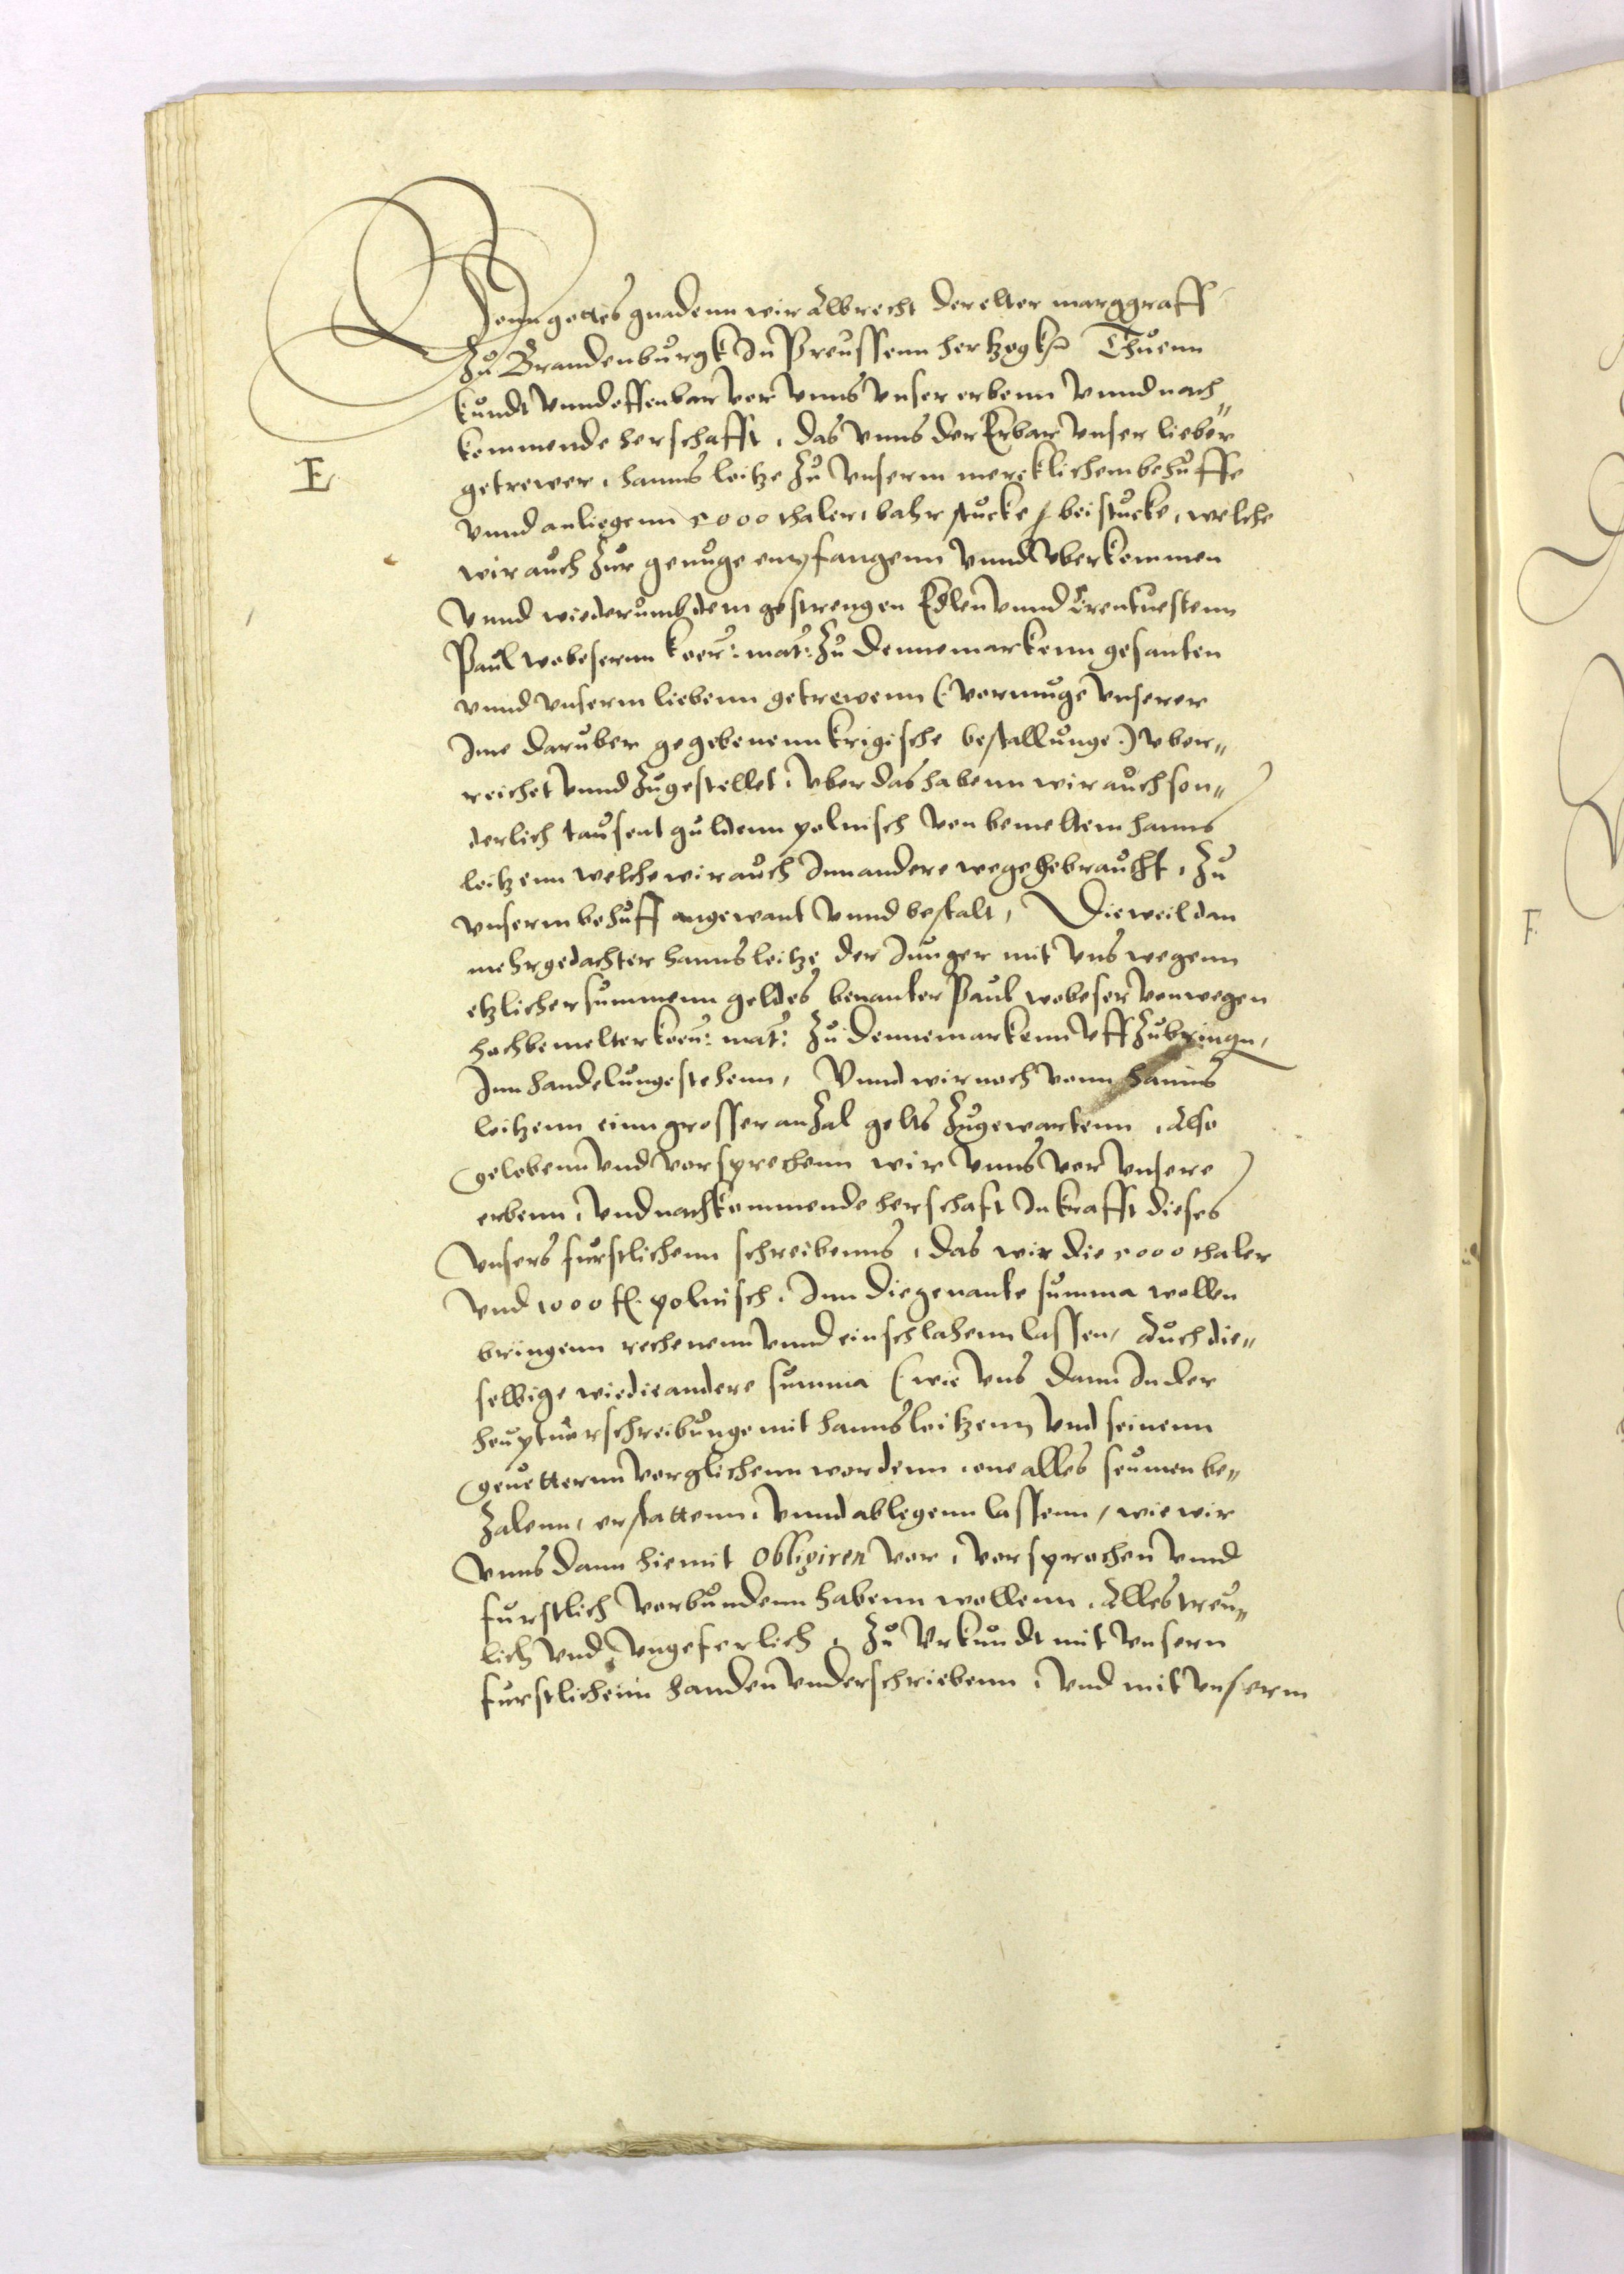 Vonn gottes gnadenn wir Albrecht der elter marggraff
Zu Brandenburgk In Preussenn hertzogk Thuenn
kundt vnnd offenbar vor vnns vnser erbenn vnnd nach„
kommende herschafft, das vnns der Erbar vnser lieber
E
getrewer, hanns leitze Zu vnserm mercklichem behuffe
vnnd anliegenn 5000 thaler, bahr stucke bei stucke, welche
wir auch Zur genuge empfangenn vnnd vberkommen
vnnd wiederumb dem gestrengen Edlen vnnd Erentuestenn
Paul wobesernn koer: mat: Zu dennemarkenn gesanten
vnnd vnserm liebenn getrewenn (vermuge vnserer
Ime daruber gegebenenn krigische bestallunge) vber„
reichet vnnd Zugestellet, vber das habenn wir auch son„
derlich tausent guldenn polnisch von bemeltem hanns
leitzenn welche wir auch Inn andere wege gebraucht, Zu
vnserm behuff angewant vnnd bestalt, Dieweil dan
mehrgedachter hanns leitze der Junger mit vns wegenn
etzlicher summenn geldes benanter Paul wobeser vonwegen
hochbemelter koen: mat: Zu dennemarkenn vff Zubringen,
Inn handelunge stehenn, Vnnd wir noch vonn hanns
leitzenn einn grosser anZal gelts Zugewartenn, Also
gelobenn vnd vorsprechenn wir vnns vor vnsere
erbenn, vnd nachkommende herschaft In krafft dieses
vnsers furstlichenn schreibenns, das wir die 5000 thaler
vnd 1000 fl. polnisch, Inn die genante summa wollen
bringenn rechenenn vnnd einschlahenn lassen, Auch die„
selbige wie die andere summa (wie vns dann In der
heuptuerschreibunge mit hanns leitzenn vnd seinenn
geuetternn verglichenn wordenn, one alles seumen be„
Zalenn, erstattenn, vnnd ablegenn lassenn, wie wir
vnns dann hiemit obligiren vor, vorsprochen vnnd
furstlich vorbundenn habenn wollenn, Alles treu„
lich vnd vngeferlich, Zu vrkundt mit vnsern
furstlichenn handen vnderschriebenn, vnd mit vnserm
F.